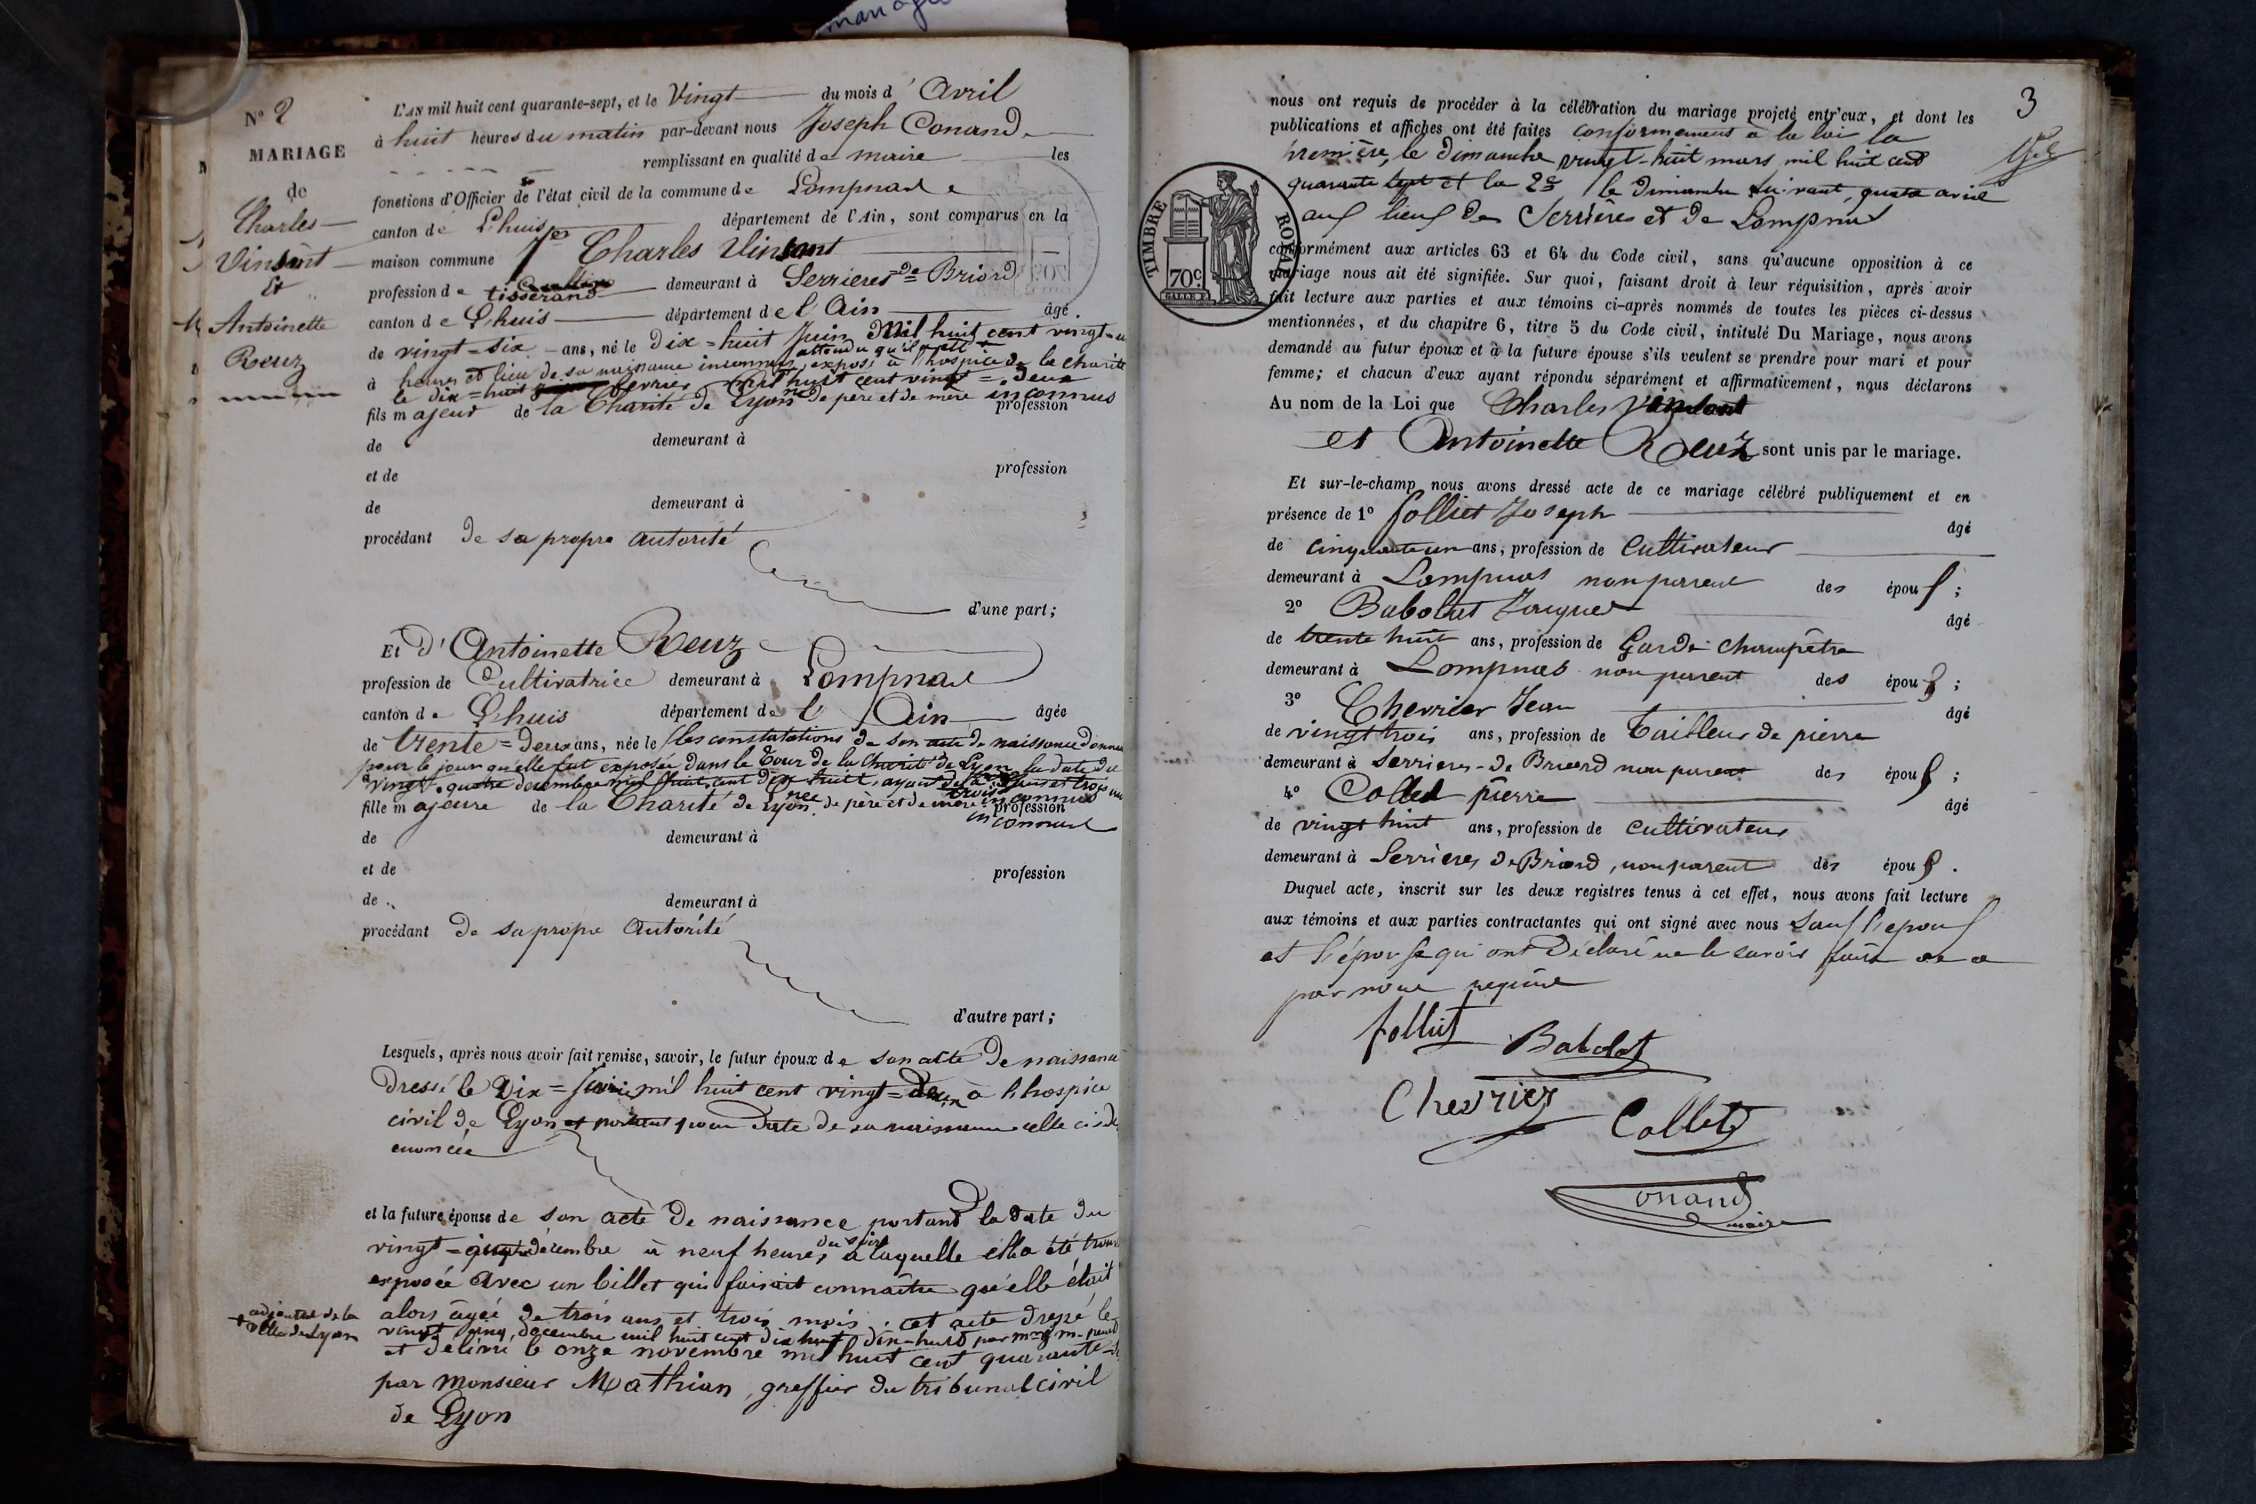 mariage
N° 2
MARIAGE
de
Charles
Vinsant
Et
Antoinette
Reuz
L'AN mil huit cent quarante-sept, et le Vingt du mois d' Avril
à huit heures du matin par-devant nous Joseph Conand
remplissant en qualité de maire les
fonctions d'Officier de l'état civil de la commune de Lompnas
canton de Lhuis département de l'Ain, sont comparus en la
maison commune Charles Vinsant
profession de tisserand demeurant à Serrieres de Briord
canton de Lhuis département de l'Ain âgé
de vingt=six ans, né le dix=huit Juin Mil huit cent vingt
à heures et lieu de sa naissance inconnus, attendu qu'il exposé à l'hospice de la charité
le dix=huit fevrier mil huit cent vingt=deux
fils majeur de la Charité de Lyon né de père et de mère inconnus profession
de demeurant à
et de profession
de demeurant à
procédant de sa propre autorité
d'une part;
Et d'Antoinette Reuz
profession de Cultivatrice demeurant à Lompnas
canton de Lhuis département de l'Ain âgée
de trente=deux ans, née le les constatations de son acte de naissance donne
pour le jour qu'elle fut exposée dans le Tour de la Charité de Lyon la date du
vingt=quatre decembre mil huit cent dix huit, ayant trois ans et trois
fille majeure de la Charité de Lyon née de père et de mère inconnus profession
inconnus
de demeurant à
et de profession
de demeurant à
procédant de sa propre autorité
d'autre part;
Lesquels, après nous avoir fait remise, savoir, le futur époux de son acte de naissance
dressé le Dix= mil huit cent vingt=deux à l'hospice
civil de Lyon et portant pour date de sa naissance celle
énoncée
et la future épouse de son acte de naissance portant la date du
vingt=quatre décembre à neuf heures du soir, à laquelle elle a été trouvée
exposée avec un billet qui faisait connaître qu'elle était
alors âgée de trois ans et trois mois; cet acte dressé le
vingt cinq decembre mil huit cent dix huit par
et délivré le onze novembre mil huit cent quarante
par Monsieur Mathian, greffier du tribunal civil
de Lyon
+ adjoint de la
ville de Lyon
3
nous ont requis de procéder à la célébration du mariage projeté entr'eux, et dont les
publications et affiches ont été faites conformement à la loi la
première, le dimanche vingt-huit mars mil huit cent
quarante sept et la 2e le dimanche suivant, quatre avril
aux lieux de Serrières et de Lompnas
TIMBRE ROYAL
70c
conformément aux articles 63 et 64 du Code civil, sans qu'aucune opposition à ce
mariage nous ait été signifiée. Sur quoi, faisant droit à leur réquisition, après avoir
fait lecture aux parties et aux témoins ci-après nommés de toutes les pièces ci-dessus
mentionnées, et du chapitre 6, titre 5 du Code civil, intitulé Du Mariage, nous avons
demandé au futur époux et à la future épouse s'ils veulent se prendre pour mari et pour
femme; et chacun d'eux ayant répondu séparément et affirmativement, nous déclarons
Au nom de la Loi que Charles Vinsant
et Antoinette Reuz sont unis par le mariage.
Et sur-le-champ nous avons dressé acte de ce mariage célébré publiquement et en
présence de 1° Folliet Joseph âgé
de cinquante un ans, profession de Cultivateur
demeurant à Lompnas non parent des époux;
2° Babolat Jacques âgé
de trente huit ans, profession de Garde champêtre
demeurant à Lompnas non parent des époux;
3° Chevrier Jean âgé
de vingt trois ans, profession de Tailleur de pierre
demeurant à Serrieres-de Briord non parent des époux;
4° Collet pierre âgé
de vingt huit ans, profession de cultivateur
demeurant à Serrieres de Briord, non parent des époux.
Duquel acte, inscrit sur les deux registres tenus à cet effet, nous avons fait lecture
aux témoins et aux parties contractantes qui ont signé avec nous sauf l'epoux
et l'épouse qui ont déclaré ne le savoir faire de ce
par nous requis
folliet
Babolat
Chevrier
Collet
Conand
maire